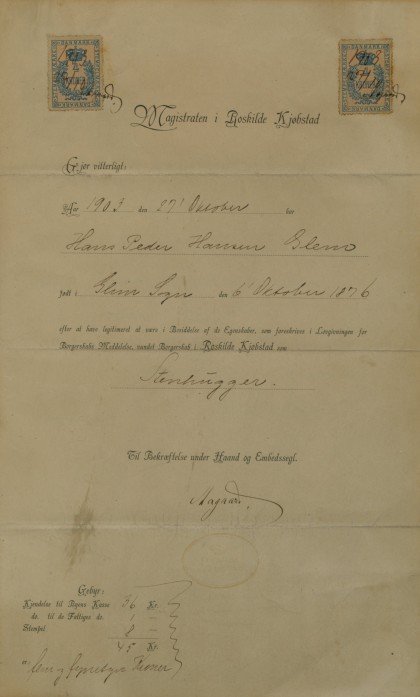 Magistraten i Roskilde Kjøbstad
Gjør vitterligt:
Aar 1903 den 27' Oktober har
Hans Peder Hansen Glem
født i Glim Sogn den 6' Oktober 1876
efter at have legitimeret at være i Besiddelse af de Egenskaber, som foreskrives i Lovgivningen for
Borgerskabs Meddelelse, vundet Borgerskab i Roskilde Kjøbstad som
Stenhugger.
Til Bekræftelse under Haand og Embedssegl.
Aagaard
Gebyr:
Kjendelse til Byens Kasse 36 Kr.
do. til de Fattiges do. 1 —
Stempel 8 —
45 Kr.
Kroner